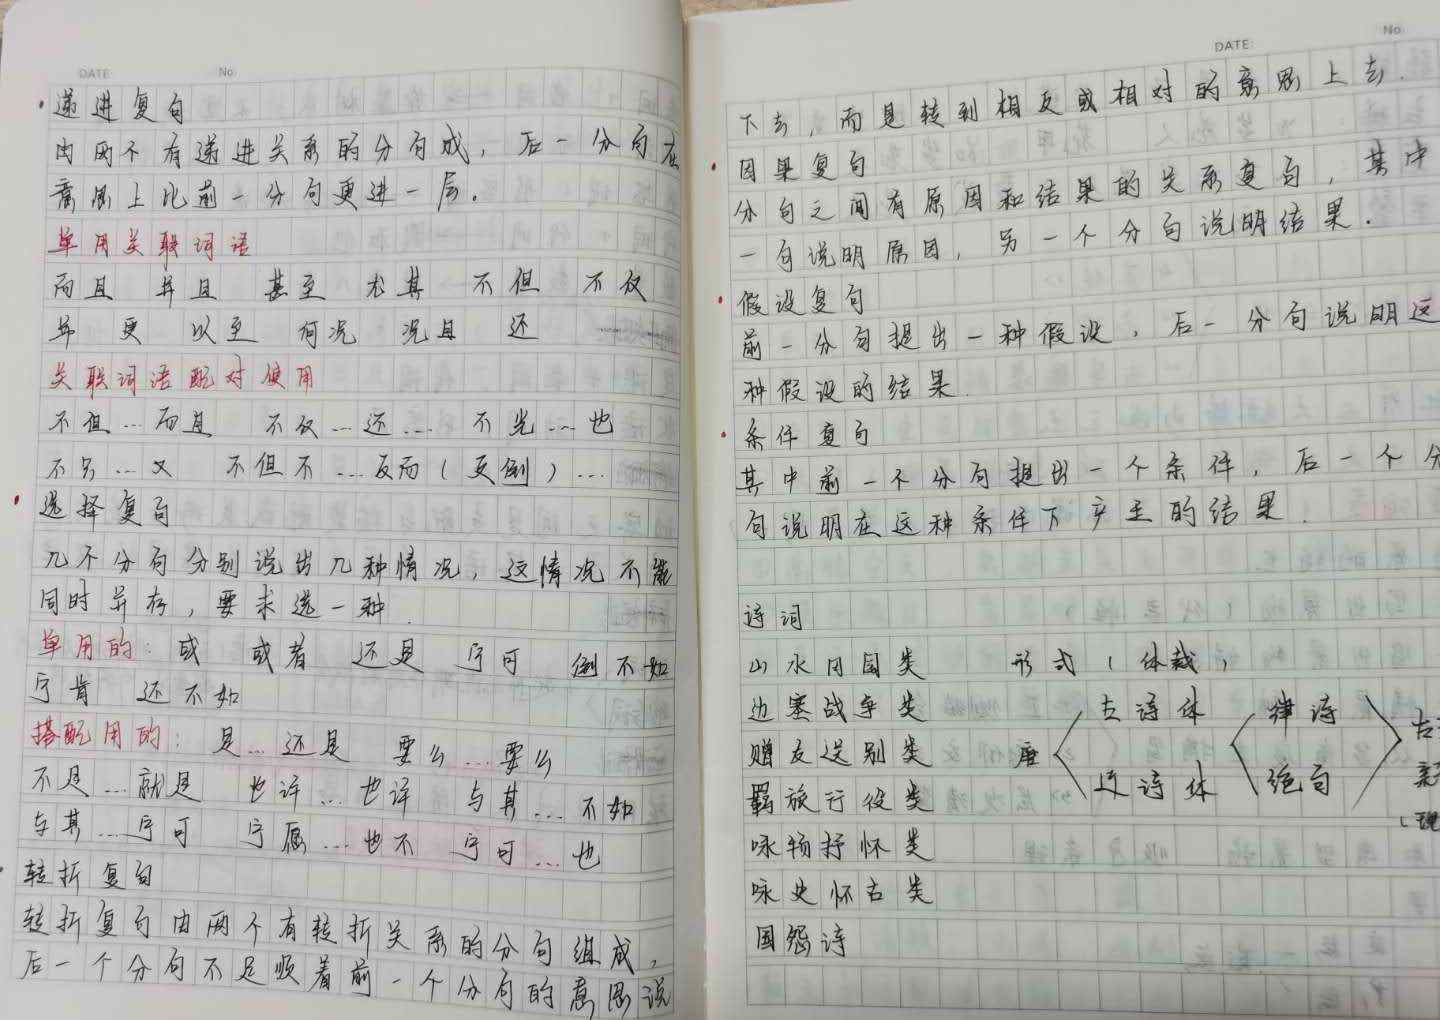 DATE No
递进复句
由两个有递进关系的分句成，后一分句在
意思上比前一分句更进一层。
单用关联词语
而且 并且 甚至 尤其 不但 不仅
并 更 以至 何况 况且 还
关联词语配对使用
不但…而且 不仅…还… 不光…也
不只…又 不但不…反而（更倒）…
选择复句
几个分句分别说出几种情况，这情况不能
同时并存，要求选一种.
单用的：或 或者 还是 宁可 倒不如
宁肯 还不如
搭配用的：是…还是 要么…要么
不是…就是 也许…也许 与其…不如
与其…宁可 宁愿…也不 宁可…也
转折复句
转折复句由两个有转折关系的分句组成，
后一个分句不是顺着前一个分句的意思说
DATE No
下去，而是转到相反或相对的意思上去.
因果复句
分句之间有原因和结果的关系复句，其中
一句说明原因，另一个分句说明结果.
假设复句
前一分句提出一种假设，后一分句说明这
种假设的结果.
条件复句
其中前一个分句提出一个条件，后一个分
句说明在这种条件下产生的结果.
诗词
山水田园类 形式（体裁）
边塞战争类 古诗体 律诗
赠友送别类 唐
羁旅行役类 近诗体 绝句
咏物抒怀类
咏史怀古类